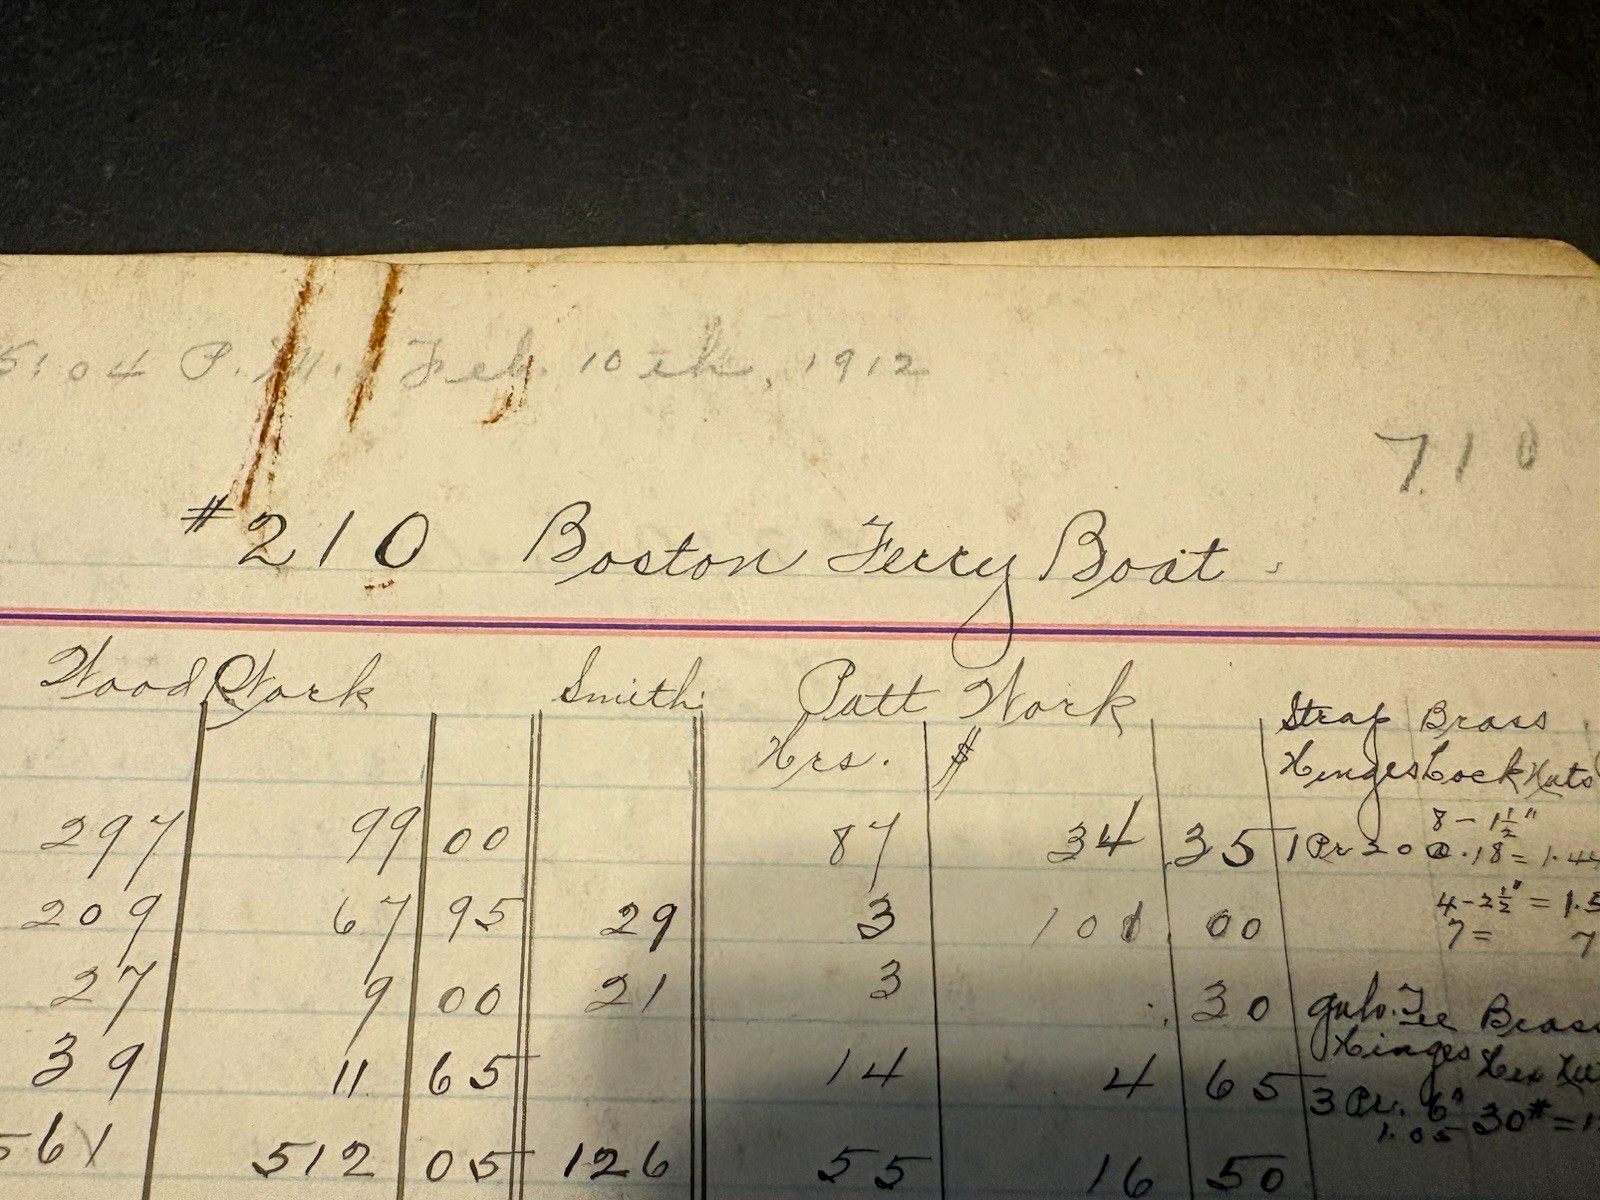 5:04 P.M. Feb. 10th, 1912
710
#210 Boston Ferry Boat.
Wood Work Smith Patt Work Strap Brass
Hrs. $ Hinges Lock Nuts
8 - 1½"
297 99 00 87 34 35 1 Pr 20 @ .18 = 1.44
4 - 2½" = 1.5
209 67 95 29 3 101.00
7 = 7
27 9 00 21 3 .30 Galv. Tee Brass
Hinges Hex
39 11 65 14 4 65 3 Pr. 6" 30# =
1.05
561 512 05 126 55 16 50